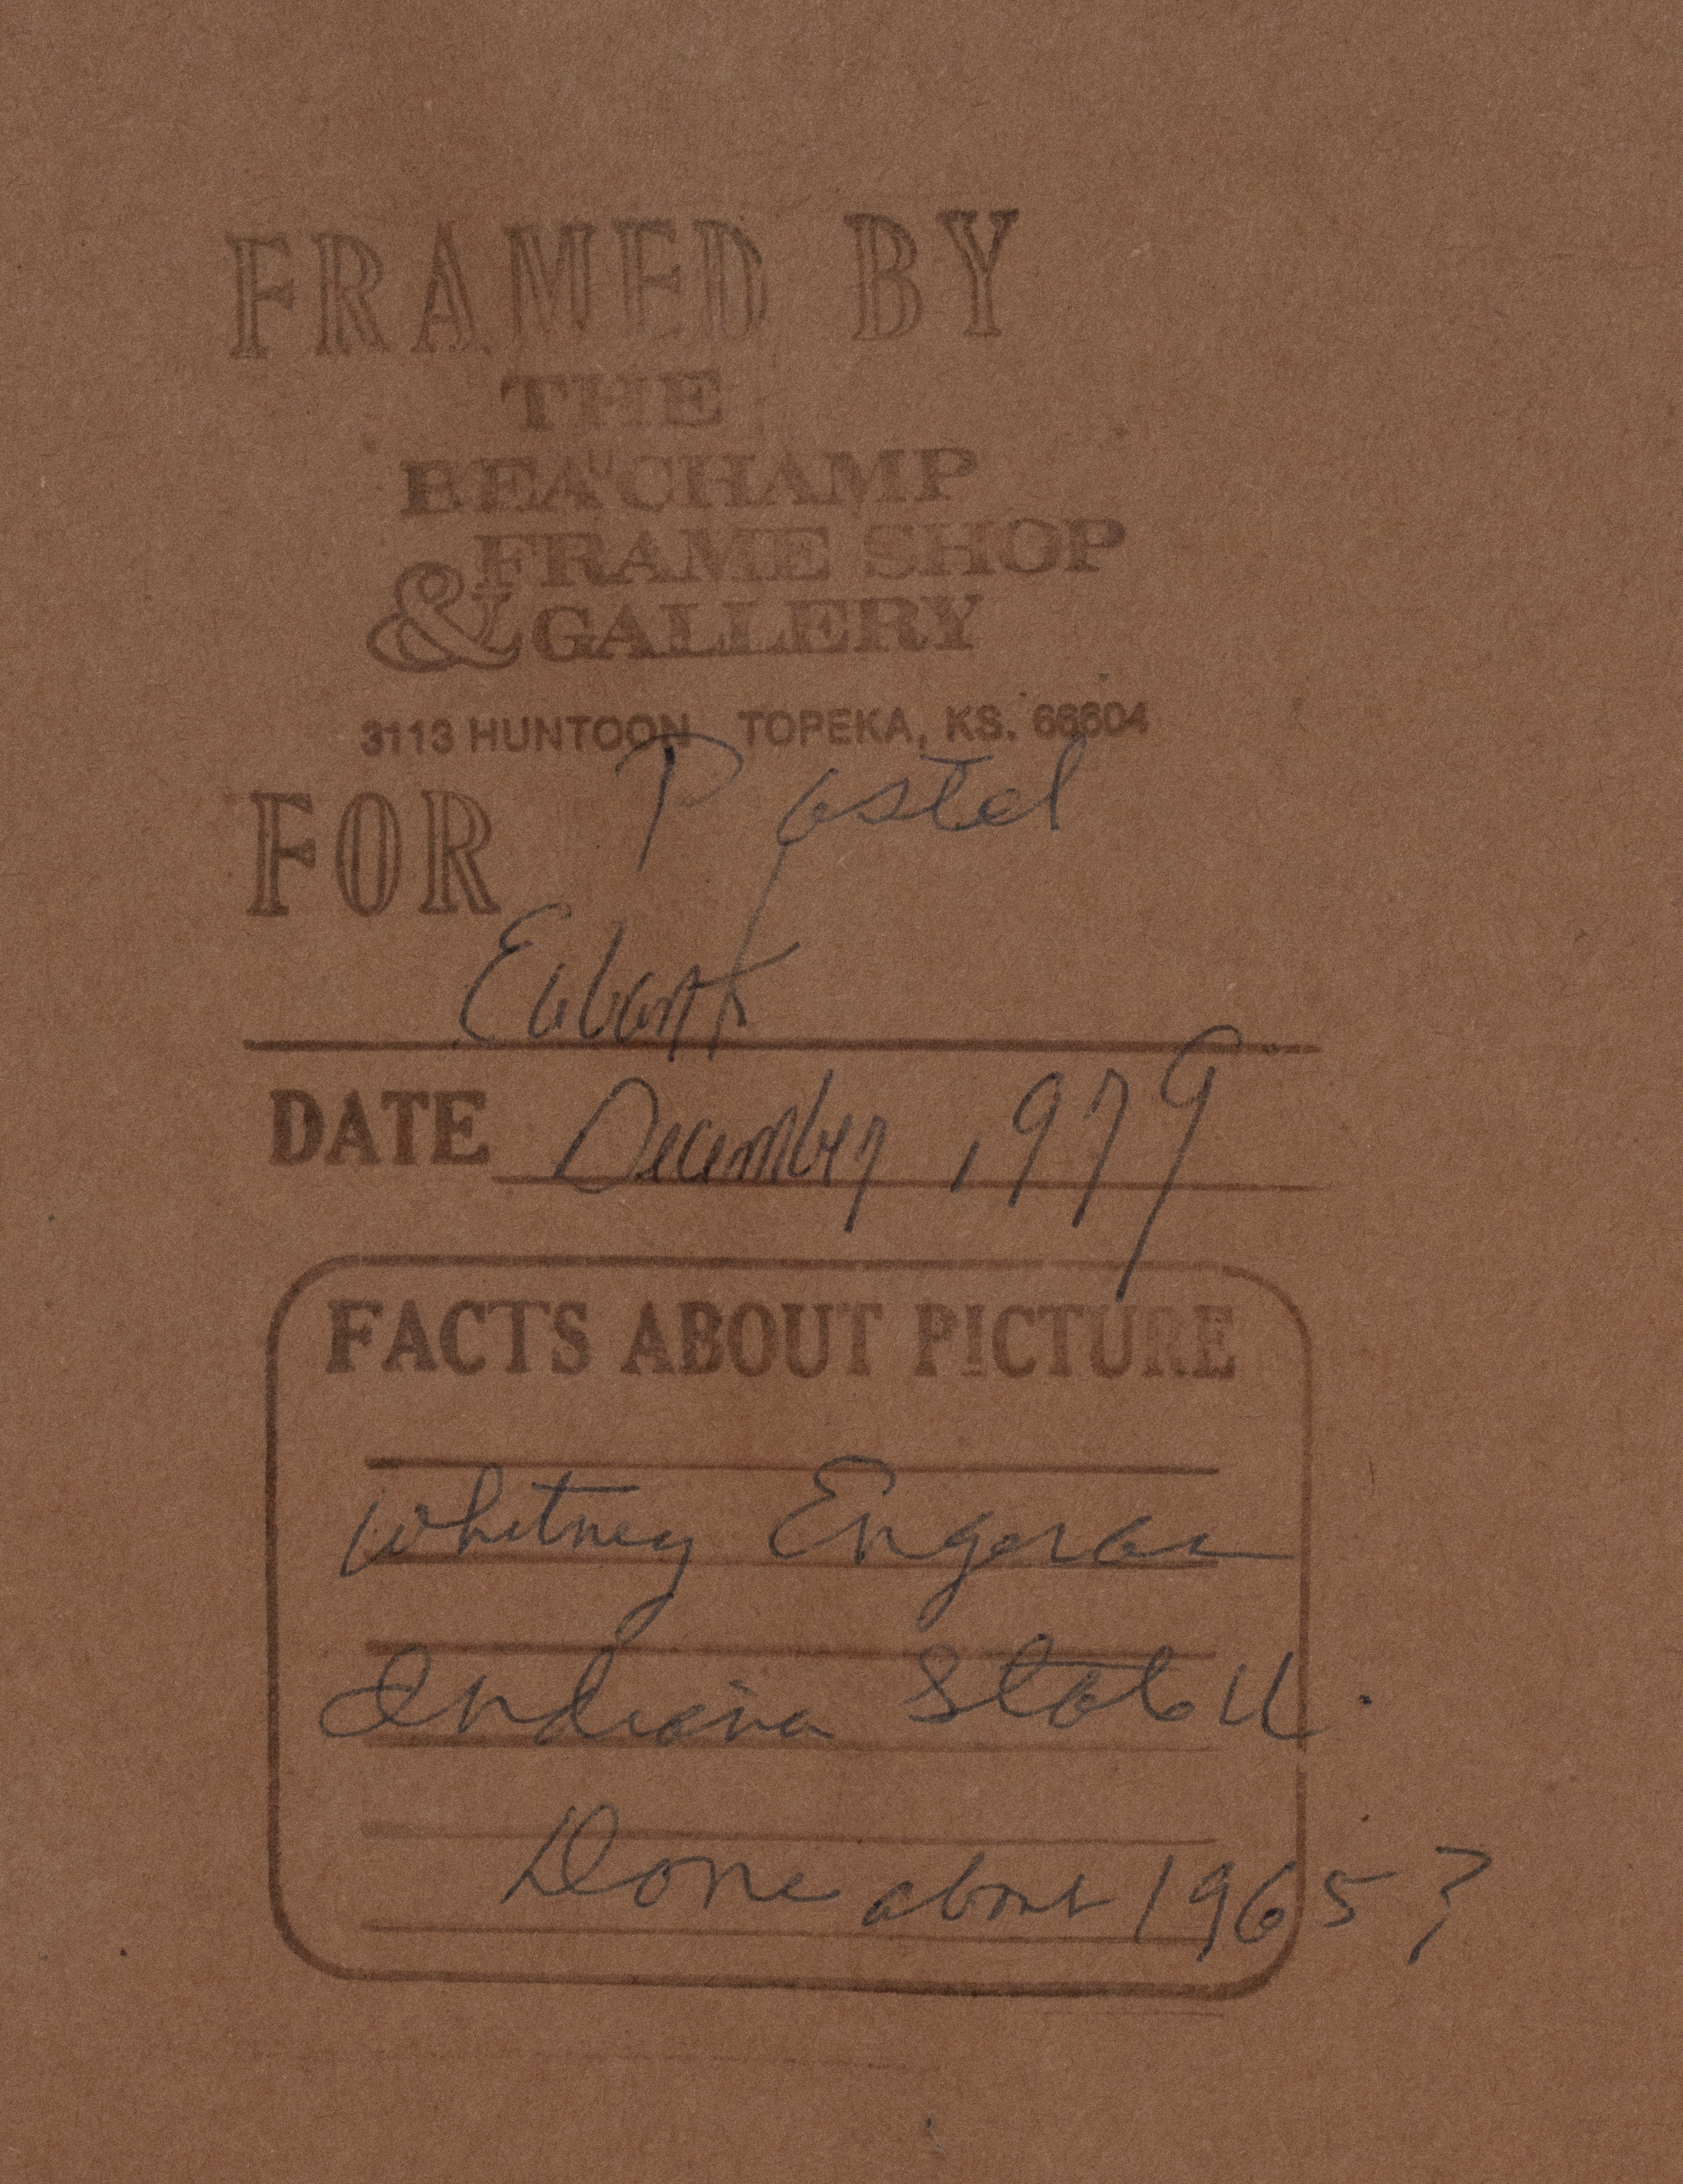 FRAMED BY
THE
BEAUCHAMP
FRAME SHOP
& GALLERY
3113 HUNTOON TOPEKA, KS. 66604
FOR Pastel
Eubank
DATE December, 1979
FACTS ABOUT PICTURE
Whitney Engeran
Indiana State U.
Done about 1965?